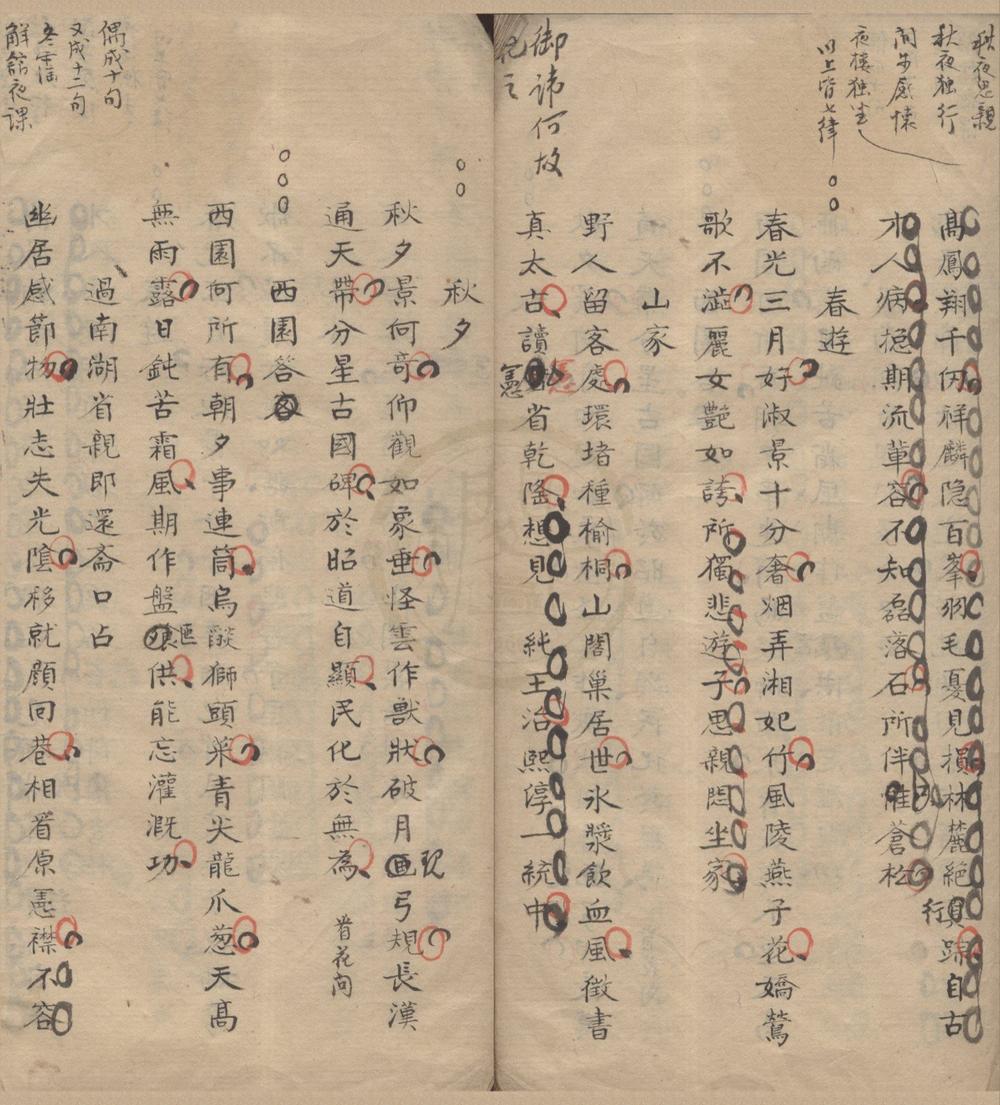 秋夜思親
秋夜独行
閒步感懐
夜樓独坐
以上皆七律
高鳳翔千仞祥麟隐百峯羽毛憂見損林麓絕行蹤自古
才人病摠期流輩容不知磊落石所伴惟蒼松
春遊
春光三月好淑景十分奢烟弄湘妃竹風陵燕子花嬌鶯
歌不澁麗女艷如誇所獨悲遊子思親悶坐家
山家
野人留客處環堵種榆桐山閣巢居世氷漿飲血風徴書
真太古讀憲省乾隆想見純王治熙淳一統中
御諱何故
犯之
秋夕
秋夕景何奇仰觀如象垂怪雲作獸狀破月現弓規長漢
通天帶分星古國碑於昭道自顯民化於無為
昔花间
西園答
西園何所有朝夕事連筒烏談獅頭菜青尖龍爪葱天高
無雨露日鈍苦霜風期作盤供能忘灌溉功
過南湖省親即還斋口占
幽居感節物壯志失光陰移就顔回巷相省原憲襟不容
偶成十句
又成十二句
解館夜課